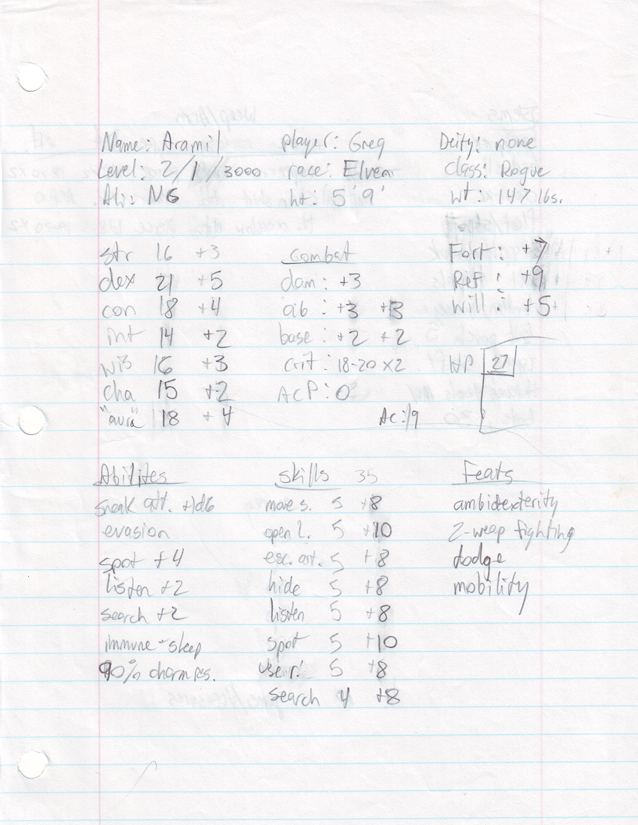 Name: Aramil player: Greg Deity: none
Level: 2/1/3000 race: Elven class: Rogue
Ali: NG ht: 5'9' wt: 147 lbs.
str 16 +3 combat Fort: +7
dex 21 +5 dam: +3 Ref: +9
con 18 +4 ab: +3 +3 will: +5
int 14 +2 base: +2 +2
wis 16 +3 crit: 18-20 x2 HP 27
cha 15 +2 ACP: 0
"aura" 18 +4 AC: 19
Abilites skills 35 Feats
sneak att. +1d6 move s. 5 +8 ambidexterity
evasion open l. 5 +10 2-weap fighting
spot +4 esc. art. 5 +8 dodge
listen +2 hide 5 +8 mobility
search +2 listen 5 +8
immune-sleep spot 5 +10
90% charm res. 5 +8
search 4 +8